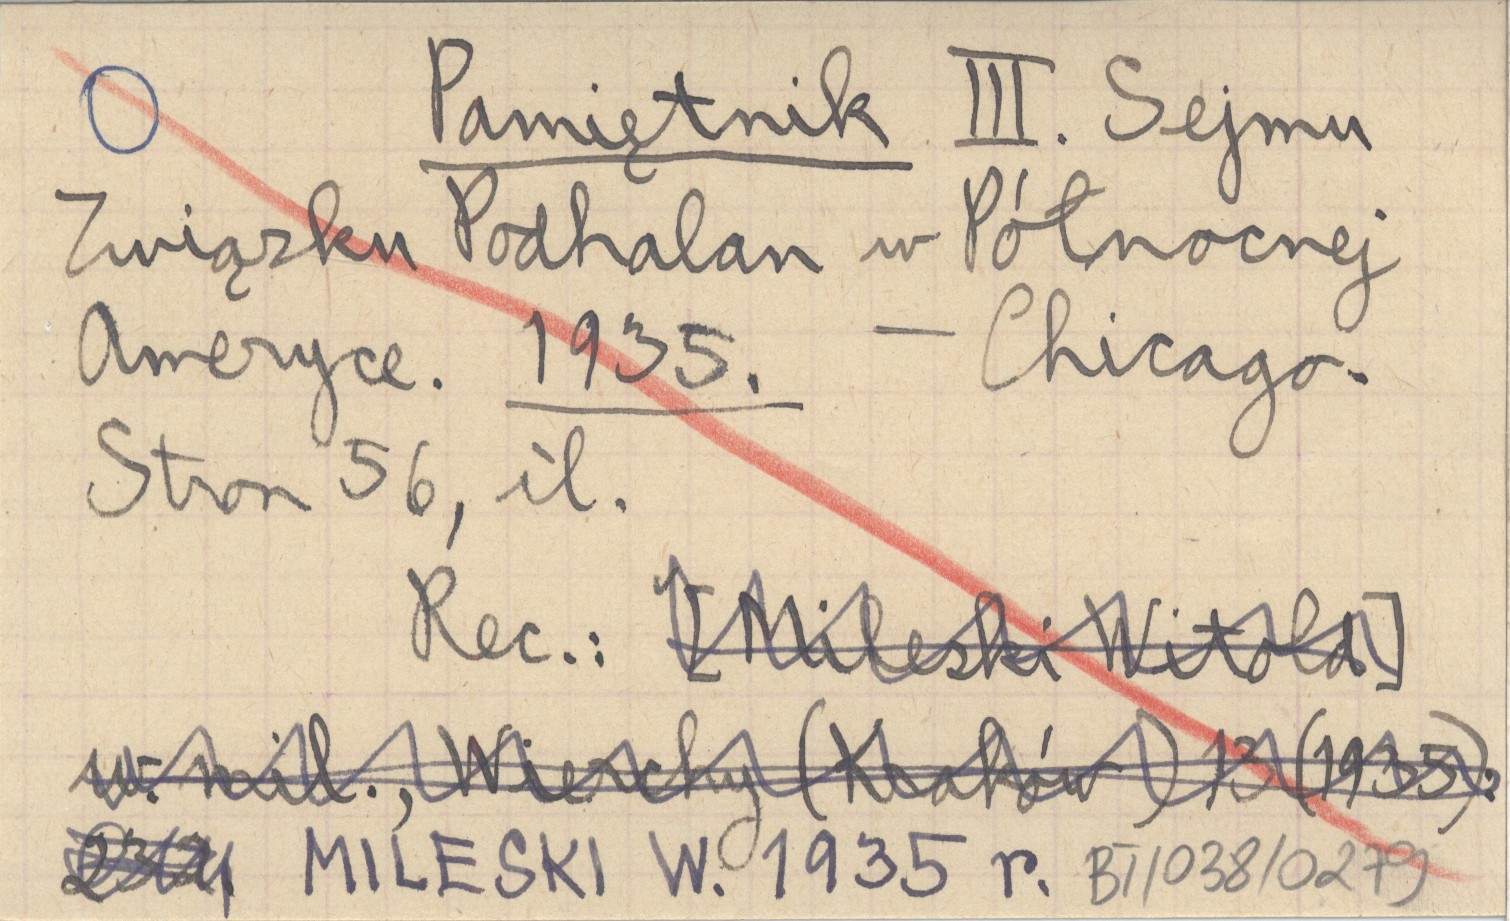 Pamiętnik III. Sejmu
Związku Podhalan w Północnej
Ameryce. 1935. — Chicago.
Stron 56, il.
Rec.: [Mileski Witold]
w. mil., Wierchy (Kraków) 13 (1935).
MILESKI W. 1935 r. BI/038/0279